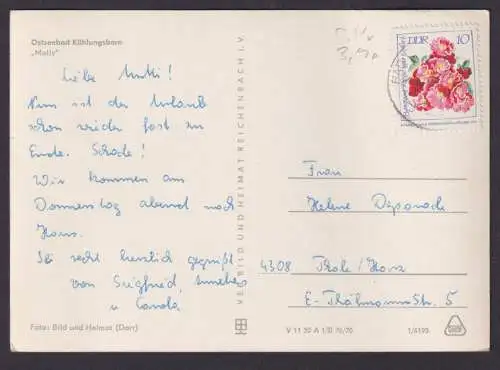 Ostseebad Kühlungsborn
„Molli"
Liebe Mutti!
Nun ist der Urlaub
schon wieder fast zu
Ende. Schade!
Wir kommen am
Donnerstag abend nach
Haus.
Sei recht herzlich gegrüßt
von Siegfried, Annelies
u. Carola
Foto: Bild und Heimat (Darr)
VEB BILD UND HEIMAT REICHENBACH I. V.
V 11 50 A 1/B 70/70
1/4193
DDR 10
Frau
Helene
4308 Thale/Harz
E.-Thälmann Str. 5